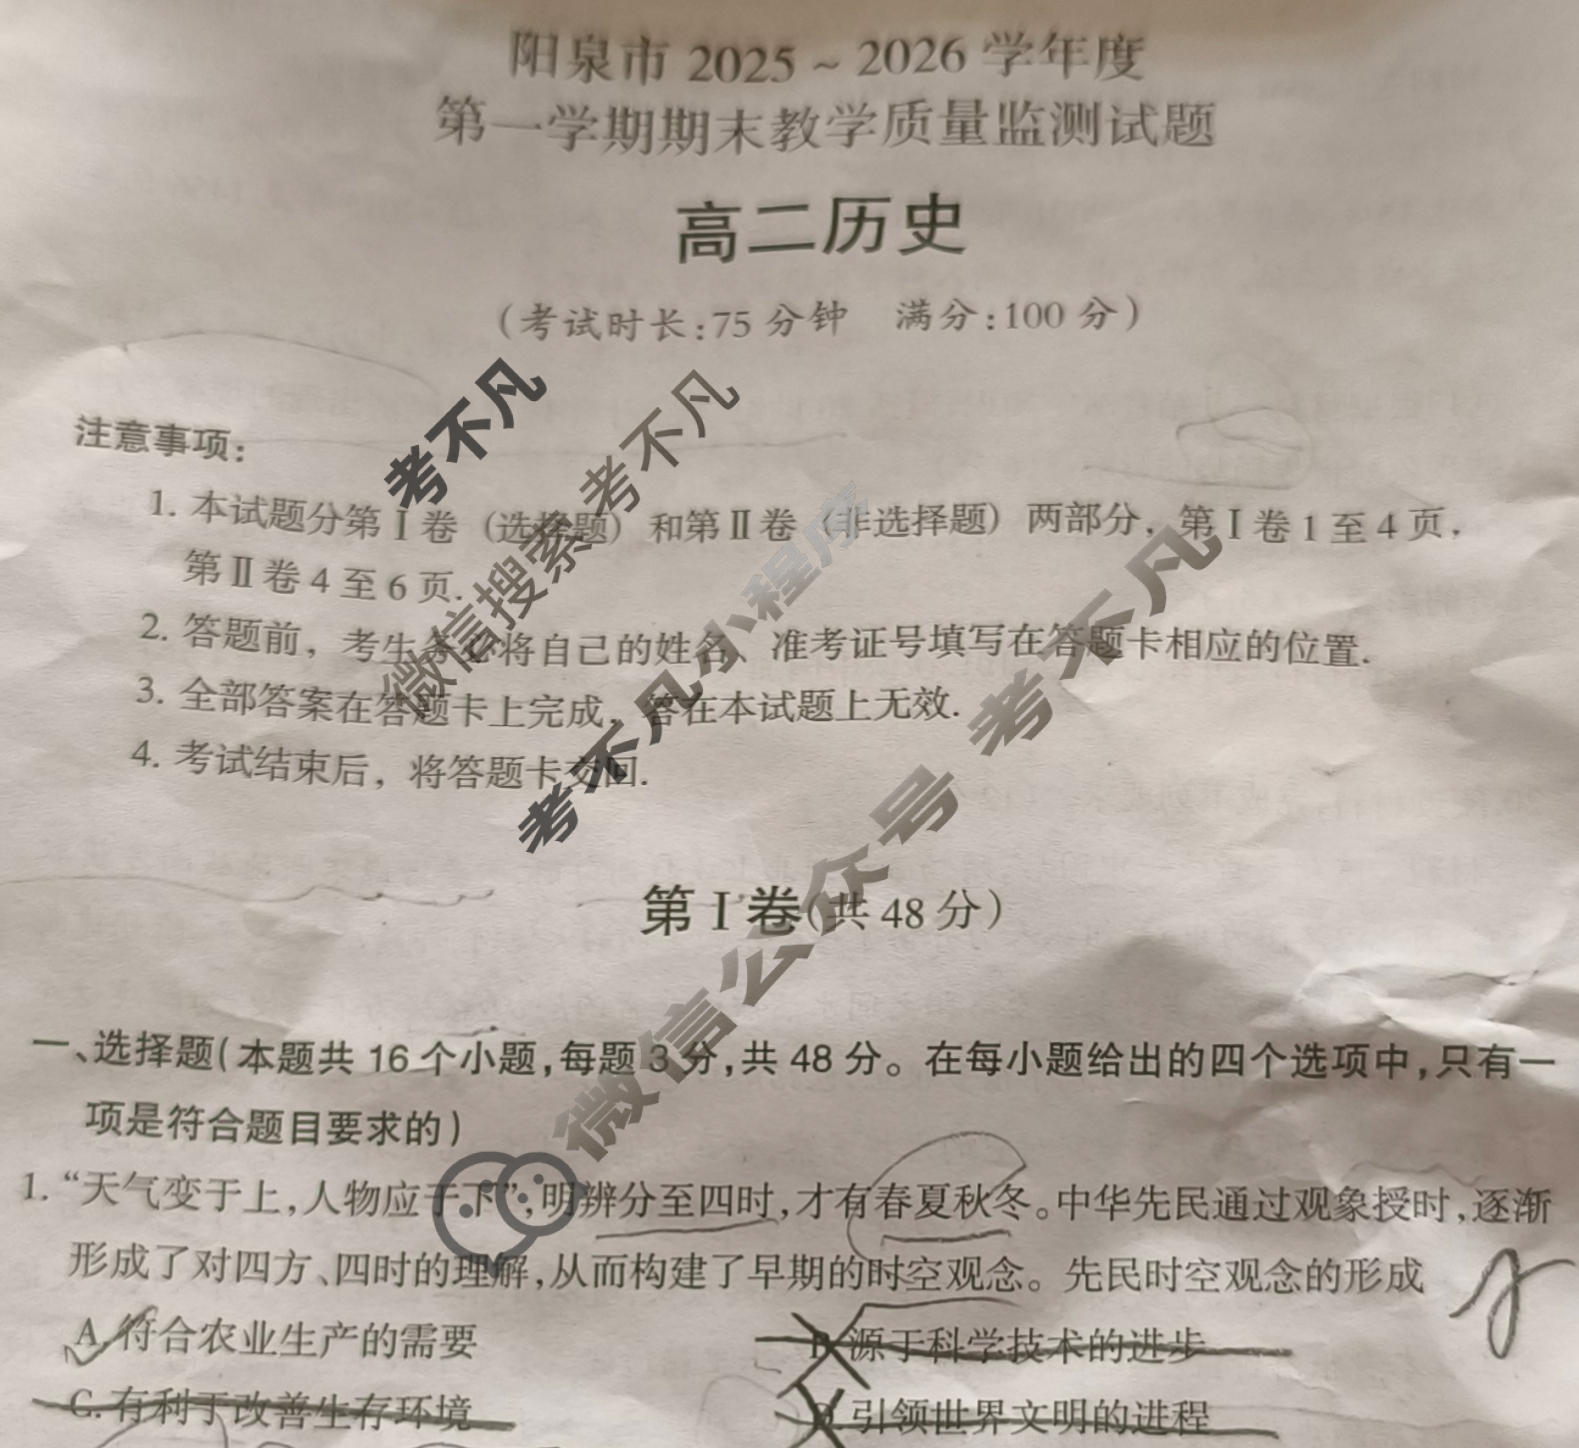 阳泉市 2025 ~ 2026 学年度
第一学期期末教学质量监测试题
高二历史
(考试时长:75 分钟 满分:100 分)
注意事项:
1. 本试题分第 I 卷 (选择题) 和第 II 卷 (非选择题) 两部分, 第 I 卷 1 至 4 页,
第 II 卷 4 至 6 页.
2. 答题前, 考生务必将自己的姓名、准考证号填写在答题卡相应的位置.
3. 全部答案在答题卡上完成, 答在本试题上无效.
4. 考试结束后, 将答题卡交回.
第 I 卷(共 48 分)
一、选择题(本题共 16 个小题,每题 3 分,共 48 分。在每小题给出的四个选项中,只有一
项是符合题目要求的)
1. “天气变于上,人物应于下”,明辨分至四时,才有春夏秋冬。中华先民通过观象授时,逐渐
形成了对四方、四时的理解,从而构建了早期的时空观念。先民时空观念的形成
A. 符合农业生产的需要 B. 源于科学技术的进步
C. 有利于改善生存环境 D. 引领世界文明的进程
考不凡
微信搜索 考不凡
考不凡小程序
微信公众号 考不凡